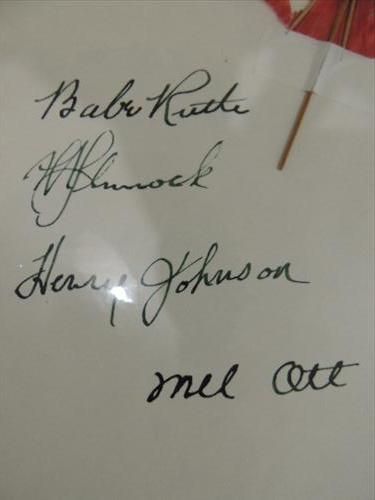 Babe Ruth
Henry Johnson
Mel Ott